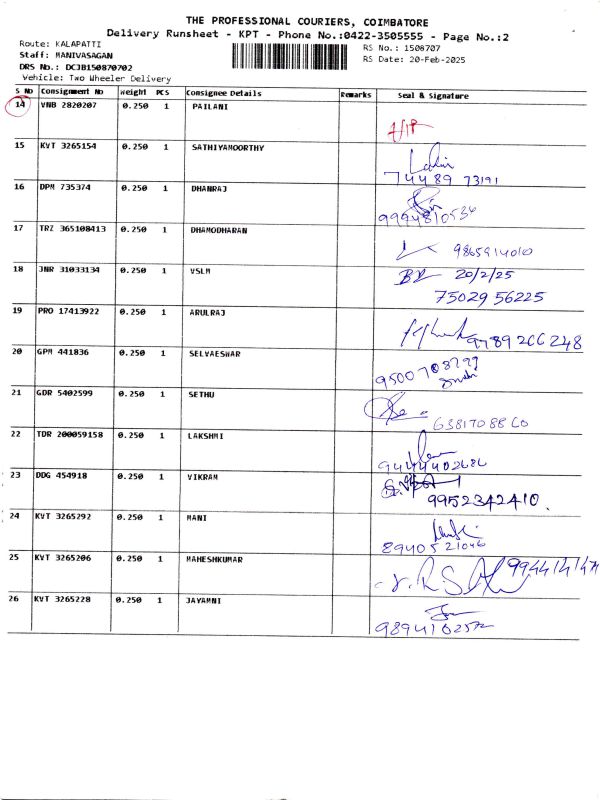 THE PROFESSIONAL COURIERS, COIMBATORE
Delivery Runsheet - KPT - Phone No.:0422-3505555 - Page No.:2
Route: KALAPATTI
RS No.: 1508707
Staff: MANIVASAGAN
RS Date: 20-Feb-2025
DRS No.: DCJB150870702
Vehicle: Two Wheeler Delivery
S No Consignment No Weight PCS Consignee Details Remarks Seal & Signature
14 VNB 2820207 0.250 1 PAILANI
15 KVT 3265154 0.250 1 SATHIYAMOORTHY
74489 73191
16 DPM 735374 0.250 1 DHANRAJ
9994810536
17 TRZ 365108413 0.250 1 DHAMODHARAN
9865914010
18 JNR 31033134 0.250 1 VSLM
20/2/25
75029 56225
19 PRO 17413922 0.250 1 ARULRAJ
9789266248
20 GPM 441836 0.250 1 SELVAESWAR
21 GDR 5402599 0.250 1 SETHU
6381708860
22 TDR 200059158 0.250 1 LAKSHMI
9444402686
23 DDG 454918 0.250 1 VIKRAM
9952342410.
24 KVT 3265292 0.250 1 MANI
8940521046
25 KVT 3265206 0.250 1 MAHESHKUMAR
26 KVT 3265228 0.250 1 JAYAMNI